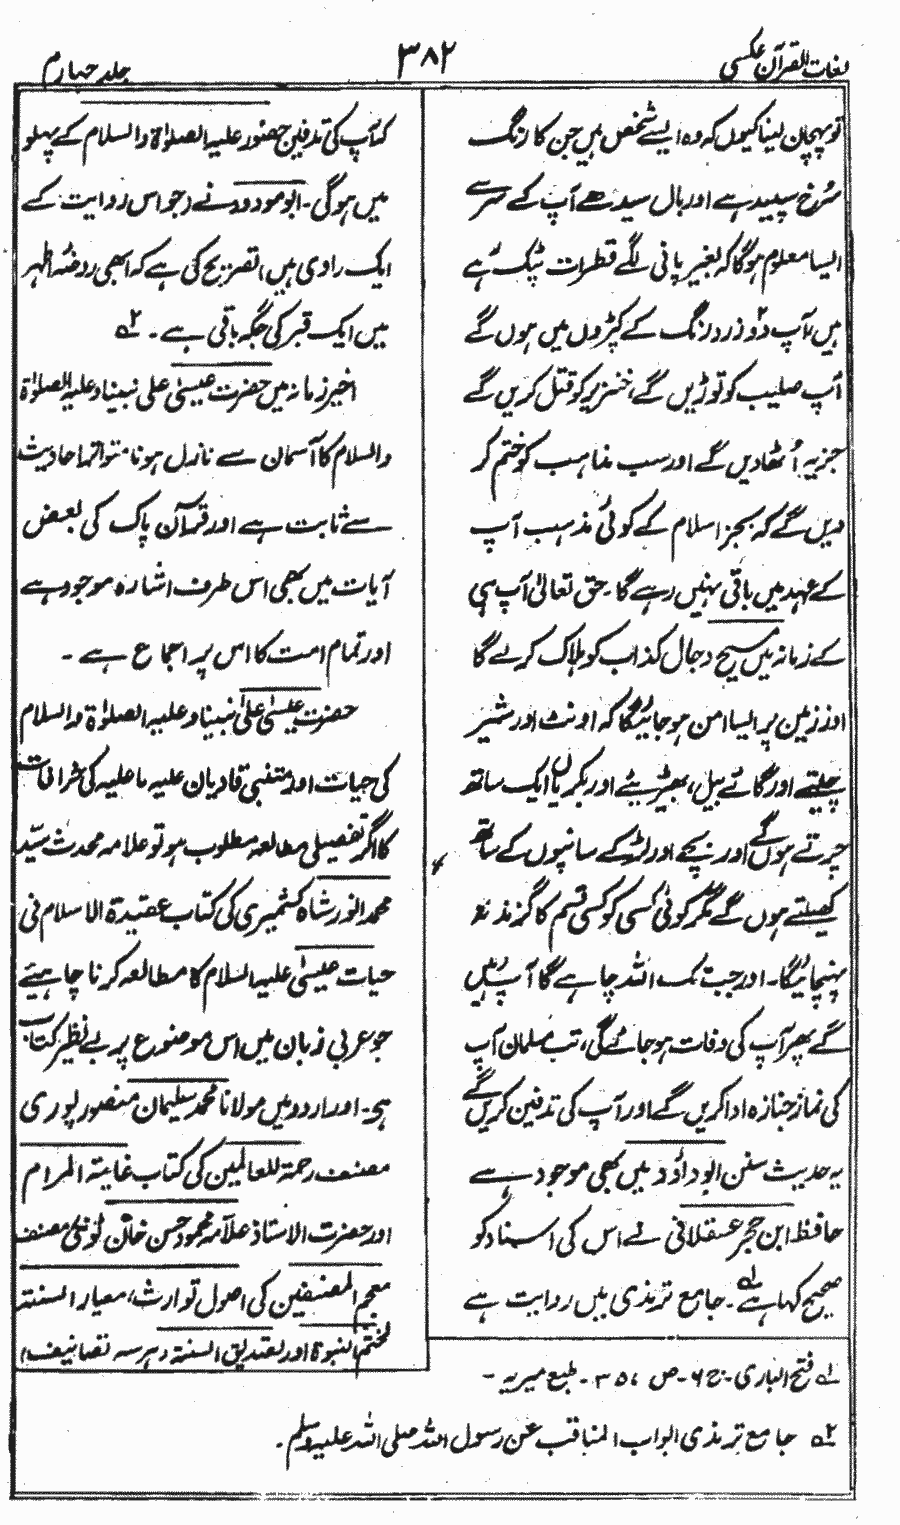 لغات القرآن عکسی
۳۸۲
جلد چہارم
تو پہچان لینا کیوں کہ وہ ایسے شخص ہیں جن کا رنگ
سرخ سپید ہے اور بال سیدھے آپ کے سر سے
ایسا معلوم ہوگا کہ بغیر پانی لگے قطرات ٹپک رہے
ہیں، آپ دو زرد رنگ کے کپڑوں میں ہوں گے
آپ صلیب کو توڑیں گے، خنزیر کو قتل کریں گے
جزیہ اُٹھا دیں گے اور سب مذاہب کو ختم کر
دیں گے کہ بجز اسلام کے کوئی مذہب آپ
کے عہد میں باقی نہیں رہے گا۔ حق تعالیٰ آپ ہی
کے زمانہ میں مسیح دجال کذاب کو ہلاک کر دے گا
اور زمین پر ایسا امن ہو جائیگا کہ اونٹ اور شیر
چیتے اور گائے بیل، بھیڑیئے اور بکریاں ایک ساتھ
چرتے ہوں گے اور بچے اور لڑکے سانپوں کے ساتھ
کھیلتے ہوں گے مگر کوئی کسی کو کسی قسم کا گزند نہ
پہنچائیگا۔ اور جب تک اللہ چاہے گا آپ رہیں
گے پھر آپ کی وفات ہو جائے گی، تب مسلمان آپ
کی نماز جنازہ ادا کریں گے اور آپ کی تدفین کریں گے
یہ حدیث سنن ابو داؤد میں بھی موجود ہے
حافظ ابن حجر عسقلانی نے اس کی اسناد کو
صحیح کہا ہے ۱؎۔ جامع ترمذی میں روایت ہے
کہ آپ کی تدفین حضور علیہ الصلوٰۃ والسلام کے پہلو
میں ہوگی۔ ابو مودود نے (جو اس روایت کے
ایک راوی ہیں) تصریح کی ہے کہ ابھی روضہ اطہر
میں ایک قبر کی جگہ باقی ہے۔ ۲؎
اخیر زمانہ میں حضرت عیسیٰ علی نبینا وعلیہ الصلوٰۃ
والسلام کا آسمان سے نازل ہونا متواتر احادیث
سے ثابت ہے اور قرآن پاک کی بعض
آیات میں بھی اس طرف اشارہ موجود ہے
اور تمام امت کا اس پر اجماع ہے۔
حضرت عیسیٰ علیٰ نبینا وعلیہ الصلوٰۃ والسلام
کی حیات اور متنبی قادیان علیہ ما علیہ کی خرافات
کا اگر تفصیلی مطالعہ مطلوب ہو تو علامہ محدث سیّد
محمد انور شاہ کشمیری کی کتاب عقیدۃ الاسلام فی
حیات عیسیٰ علیہ السلام کا مطالعہ کرنا چاہیئے
جو عربی زبان میں اس موضوع پر بے نظیر کتاب
ہے۔ اور اردو میں مولانا محمد سلیمان منصور پوری
مصنف رحمۃ للعالمین کی کتاب غایۃ المرام
اور حضرت الاستاذ علامہ محمود حسن خاں ٹونکی مصنف
معجم المصنفین کی اصول توارث، معیار السنۃ
لختم النبوۃ اور تصدیق السنۃ (ہر سہ تصانیف)
۱؎ فتح الباری۔ ج ۶۔ ص ۳۵۷۔ طبع میریہ۔
۲؎ جامع ترمذی ابواب المناقب عن رسول اللہ صلی اللہ علیہ وسلم۔